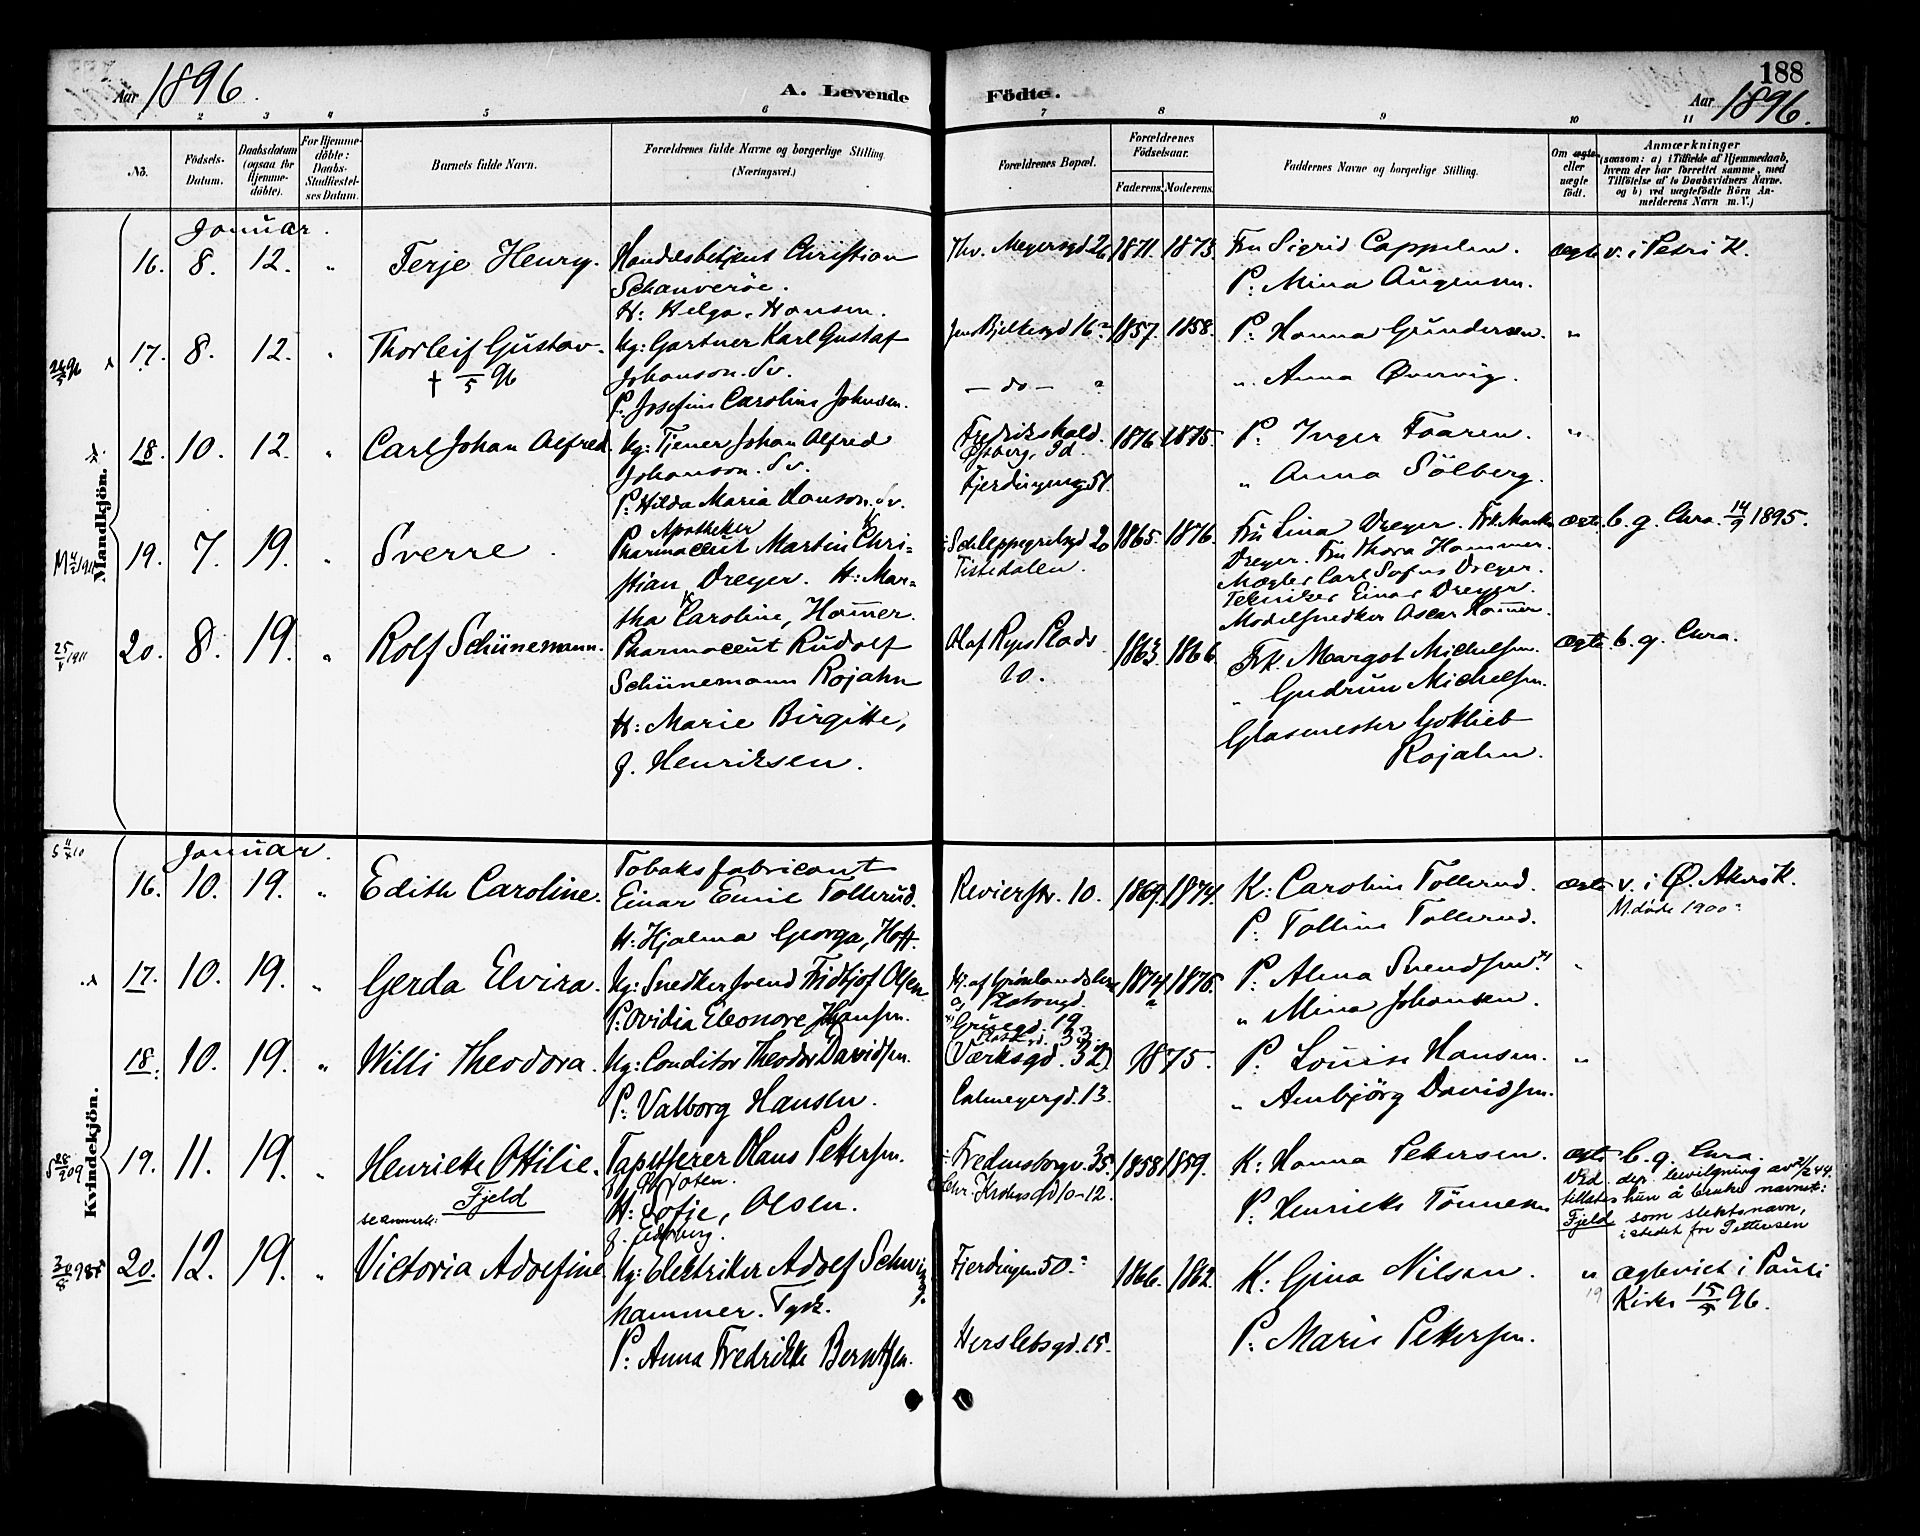 Aar 1896.
A. Levende
Födte.
188
Aar 1896.
2 3 4 5 6 7 8 9 10 11
No.
Födsels-
Datum.
Daabsdatum
(ogsaa for
Hjemme-
döbte).
For Hjemme-
döbte:
Daabs-
Stadfæstel-
ses Datum.
Barnets fulde Navn.
Forældrenes fulde Navne og borgerlige Stilling
(Næringsvei.)
Forældrenes Bopæl.
Forældrenes
Födselsaar.
Faderens. Moderens.
Faddernes Navne og borgerlige Stilling.
Om ægte
eller
uægte
födt.
Anmærkninger
(saasom: a) i Tilfælde af Hjemmedaab,
hvem der har forrettet samme, med
Tilföielse af to Daabsvidners Navne.
og b) ved uægtefödte Börn An-
melderens Navn m. V.)
Mandkjön.
Januar.
16. 8. 12. " Terje Henry. Handelsbetjent Christian
Schanveröe.
H: Helga, Hansen.
Thv. Meyersgd 26 1871. 1873. Fru Sigrid Cappelen. ægte v. i Petri K.
P: Mina Augensen.
17. 8. 12. " Thorleif Gustav.
† /5 96
Ug: Gartner Karl Gustaf
Johanson. Sv.
P. Josefine Caroline Johnsen.
Jens Bjelkesgd 16 1857. 1858. P: Hanna Gundersen. "
— do — " " Anna Øvervig.
18. 10. 12. " Carl Johan Alfred. Ug: Tjener Johan Alfred
Johanson. Sv.
P: Hilda Maria Hanson. Sv.
Fredrikshald.
Id.
Fjerdingen 51.
1876. 1875. P. Inger Faaren. "
" Anna Sölberg.
19. 7. 19. " Sverre.
Apotheker
Pharmaceut Martin Chri=
stian Dreyer. H: Mar=
tha Caroline, Hammer.
Schleppegrelsgd 20
Tistedalen.
1865. 1876. Fru Lina Dreyer. Frk. Marta
Dreyer. Fru Thora Hammer.
Mægler Carl Sofus Dreyer.
Tekniker Einar Dreyer.
Modelsnedker Oscar Hammer.
ægte b. g. Chra. 14/9 1895.
25/8 1911
20. 8. 19. " Rolf Schünemann. Pharmaceut Rudolf
Schünemann Rojahn
H: Marie Birgitte,
J. Henriksen.
Olaf Ryes Plads
20.
1863. 1866. Frk Margot Michelsen. ægte b. g. Chra.
" Gudrun Michelsen.
Glasmester Gottlieb
Rojahn.
Kvindekjön.
Januar.
16. 10. 19. " Edith Caroline. Tobaksfabricant
Einar Emil Tollerud.
H: Hjalma Georga, Hoff.
Revierstr. 10. 1869. 1874. K: Caroline Tollerud. ægte v. i Ø. Aker K.
M. döde 1900
P: Talline Tollerud.
17. 10. 19. " Gerda Elvira. Ug: Snedker Svend Fridtjof Olsen
P: Ovidia Eleonore Hansen.
Platougd.
Grüsegd. 19
1874 1876. P: Alma Svendsen. "
" Mina Johansen.
18. 10. 19. " Willi Theodora. Ug: Conditor Theodor Davidsen.
P: Valborg Hansen.
Værksgd. 32
Calmeyergd. 13.
1875. P: Louise Hansen. "
" Ambjörg Davidsen.
19. 11. 19. " Henriette Ottilie.
Fjeld
se anmerk:
Tapetserer Olaus Pettersen.
f. Toten.
H: Sofie, Olsen.
f. Eidsberg.
Fredensborgv. 35.
Chr. Krohgsgd 10-12.
1858 1859. K: Hanna Pettersen. ægte b. g. Chra.
P: Henriette Tönnesen
Ved dep. bevilgning av 21/2 44
tilletes hun å bruke navnet:
Fjeld som slektsnavn,
istedet for Pettersen
20. 12. 19. " Victoria Adolfine. Ug: Elektriker Adolf Schwing
hammer. Tysk.
P: Anna Fredrikke Berntsen.
Fjerdingen 50.
Herslebsgd. 15.
1866. 1862. K: Gina Nilsen. " ægteviet i Pauli
Kirke 15/5 96.
P: Marie Pettersen.